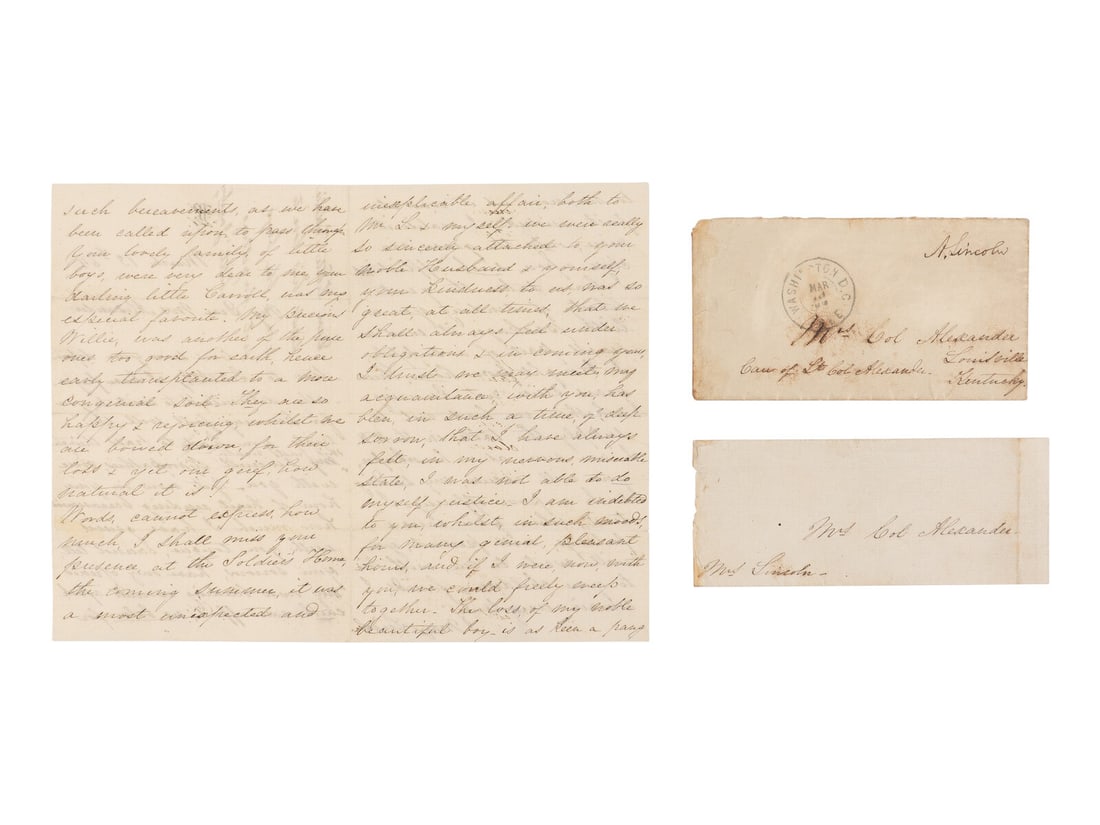 such bereavements, as we have
been called upon, to pass through
Your lovely family, of little
boys, were very dear to me, your
darling little Carroll, was my
especial favorite. My precious
Willie, was another of the pure
ones too good for earth, hence
early transplanted to a more
congenial soil. They are so
happy & rejoicing, whilst we
are bowed down, for their
loss & yet our grief, how
natural it is!
Words, cannot express, how
much, I shall miss your
presence, at the Soldiers' Home,
the coming summer, it was
a most unexpected and
inexplicable affair, both to
Mr L- & myself, we were really
so sincerely attached to your
noble Husband & yourself,
your kindness to us, was so
great, at all times, that we
shall always feel under
obligations & in coming years,
I trust we may meet, my
acquaintance, with you, has
been, in such a time of deep
sorrow, that I have always
felt, in my nervous, miserable
state, I was not able to do
myself justice - I am indebted
to you, whilst, in such moods,
for many genial, pleasant
hours, and if I were now, with
you, we could freely weep
together - The loss of my noble
beautiful boy - is as keen a pang
A. Lincoln
WASHINGTON D.C.
MAR
Mrs Col Alexander
Louisville
Care of Lt Col Alexander.
Kentucky.
Mrs Col Alexander
Mrs Lincoln -